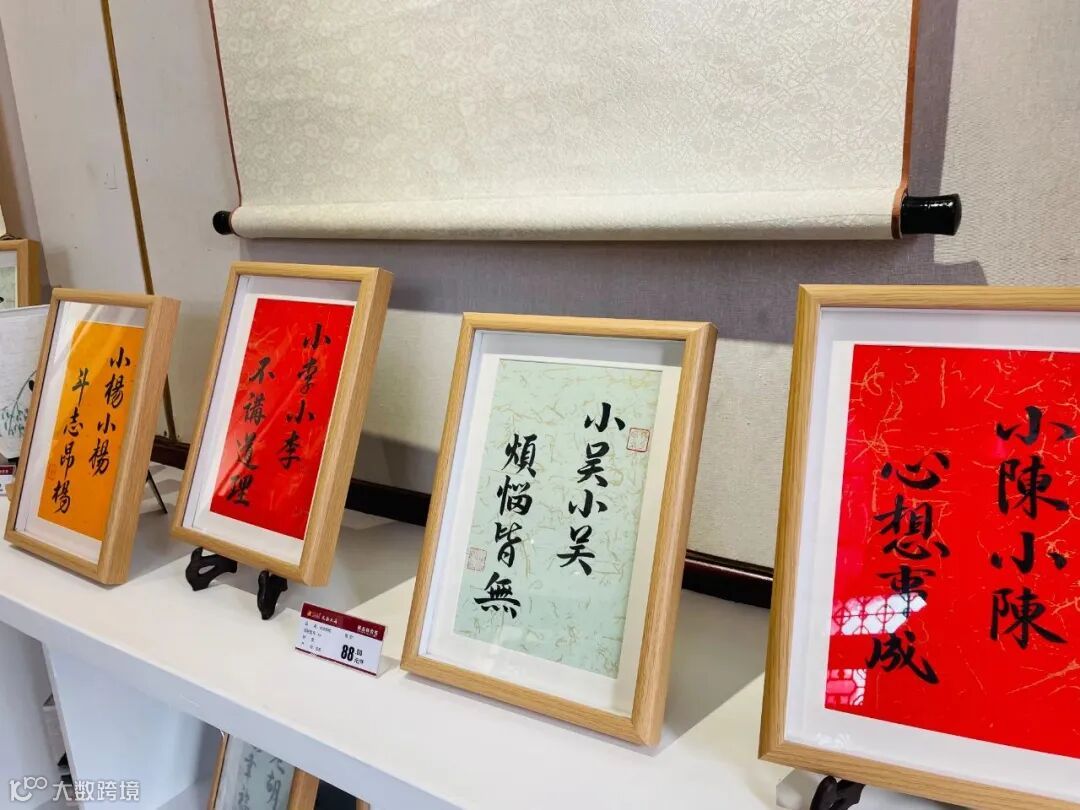 小楊小楊
斗志昂楊
小李小李
不講道理
小吴小吴
煩惱皆無
小陳小陳
心想事成
88.00
大数跨境